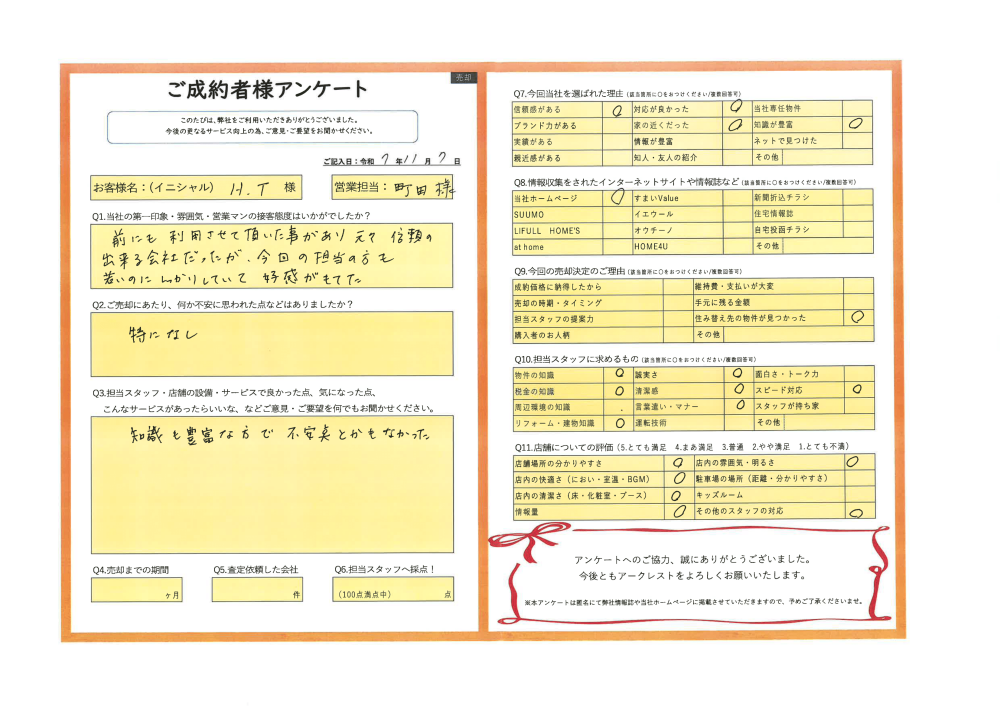 売却
ご成約者様アンケート
このたびは、弊社をご利用いただきありがとうございました。
今後の更なるサービス向上の為、ご意見・ご要望をお聞かせください。
ご記入日：令和 7 年 11 月 7 日
お客様名：(イニシャル) H.T 様
営業担当： 町田 様
Q1.当社の第一印象・雰囲気・営業マンの接客態度はいかがでしたか？
前にも利用させて頂いた事があり元々信頼の
出来る会社だったが、今回の担当の方も
若いのにしっかりしていて 好感がもてた
Q2.ご売却にあたり、何か不安に思われた点などはありましたか？
特になし
Q3.担当スタッフ・店舗の設備・サービスで良かった点、気になった点、
こんなサービスがあったらいいな、などご意見・ご要望を何でもお聞かせください。
知識も豊富な方で 不安点とかもなかった
Q4.売却までの期間
ヶ月
Q5.査定依頼した会社
件
Q6.担当スタッフへ採点！
(100点満点中) 点
Q7.今回当社を選ばれた理由 (該当箇所に○をおつけください/複数回答可)
信頼感がある ○ 対応が良かった ○ 当社専任物件
ブランド力がある 家の近くだった ○ 知識が豊富 ○
実績がある 情報が豊富 ネットで見つけた
親近感がある 知人・友人の紹介 その他
Q8.情報収集をされたインターネットサイトや情報誌など (該当箇所に○をおつけください/複数回答可)
当社ホームページ ○ すまいValue 新聞折込チラシ
SUUMO イエウール 住宅情報誌
LIFULL HOME'S オウチーノ 自宅投函チラシ
at home HOME4U その他
Q9.今回の売却決定のご理由 (該当箇所に○をおつけください/複数回答可)
成約価格に納得したから 維持費・支払いが大変
売却の時期・タイミング 手元に残る金額
担当スタッフの提案力 住み替え先の物件が見つかった ○
購入者のお人柄 その他
Q10.担当スタッフに求めるもの (該当箇所に○をおつけください/複数回答可)
物件の知識 ○ 誠実さ ○ 面白さ・トーク力
税金の知識 ○ 清潔感 ○ スピード対応 ○
周辺環境の知識 言葉遣い・マナー ○ スタッフが持ち家
リフォーム・建物知識 ○ 運転技術 その他
Q11.店舗についての評価 (5.とても満足 4.まあ満足 3.普通 2.やや満足 1.とても不満)
店舗場所の分かりやすさ ○ 店内の雰囲気・明るさ ○
店内の快適さ (におい・室温・BGM) ○ 駐車場の場所 (距離・分かりやすさ)
店内の清潔さ (床・化粧室・ブース) ○ キッズルーム
情報量 ○ その他のスタッフの対応 ○
アンケートへのご協力、誠にありがとうございました。
今後ともアークレストをよろしくお願いいたします。
※本アンケートは匿名にて弊社情報誌や当社ホームページに掲載させていただきますので、予めご了承くださいませ。